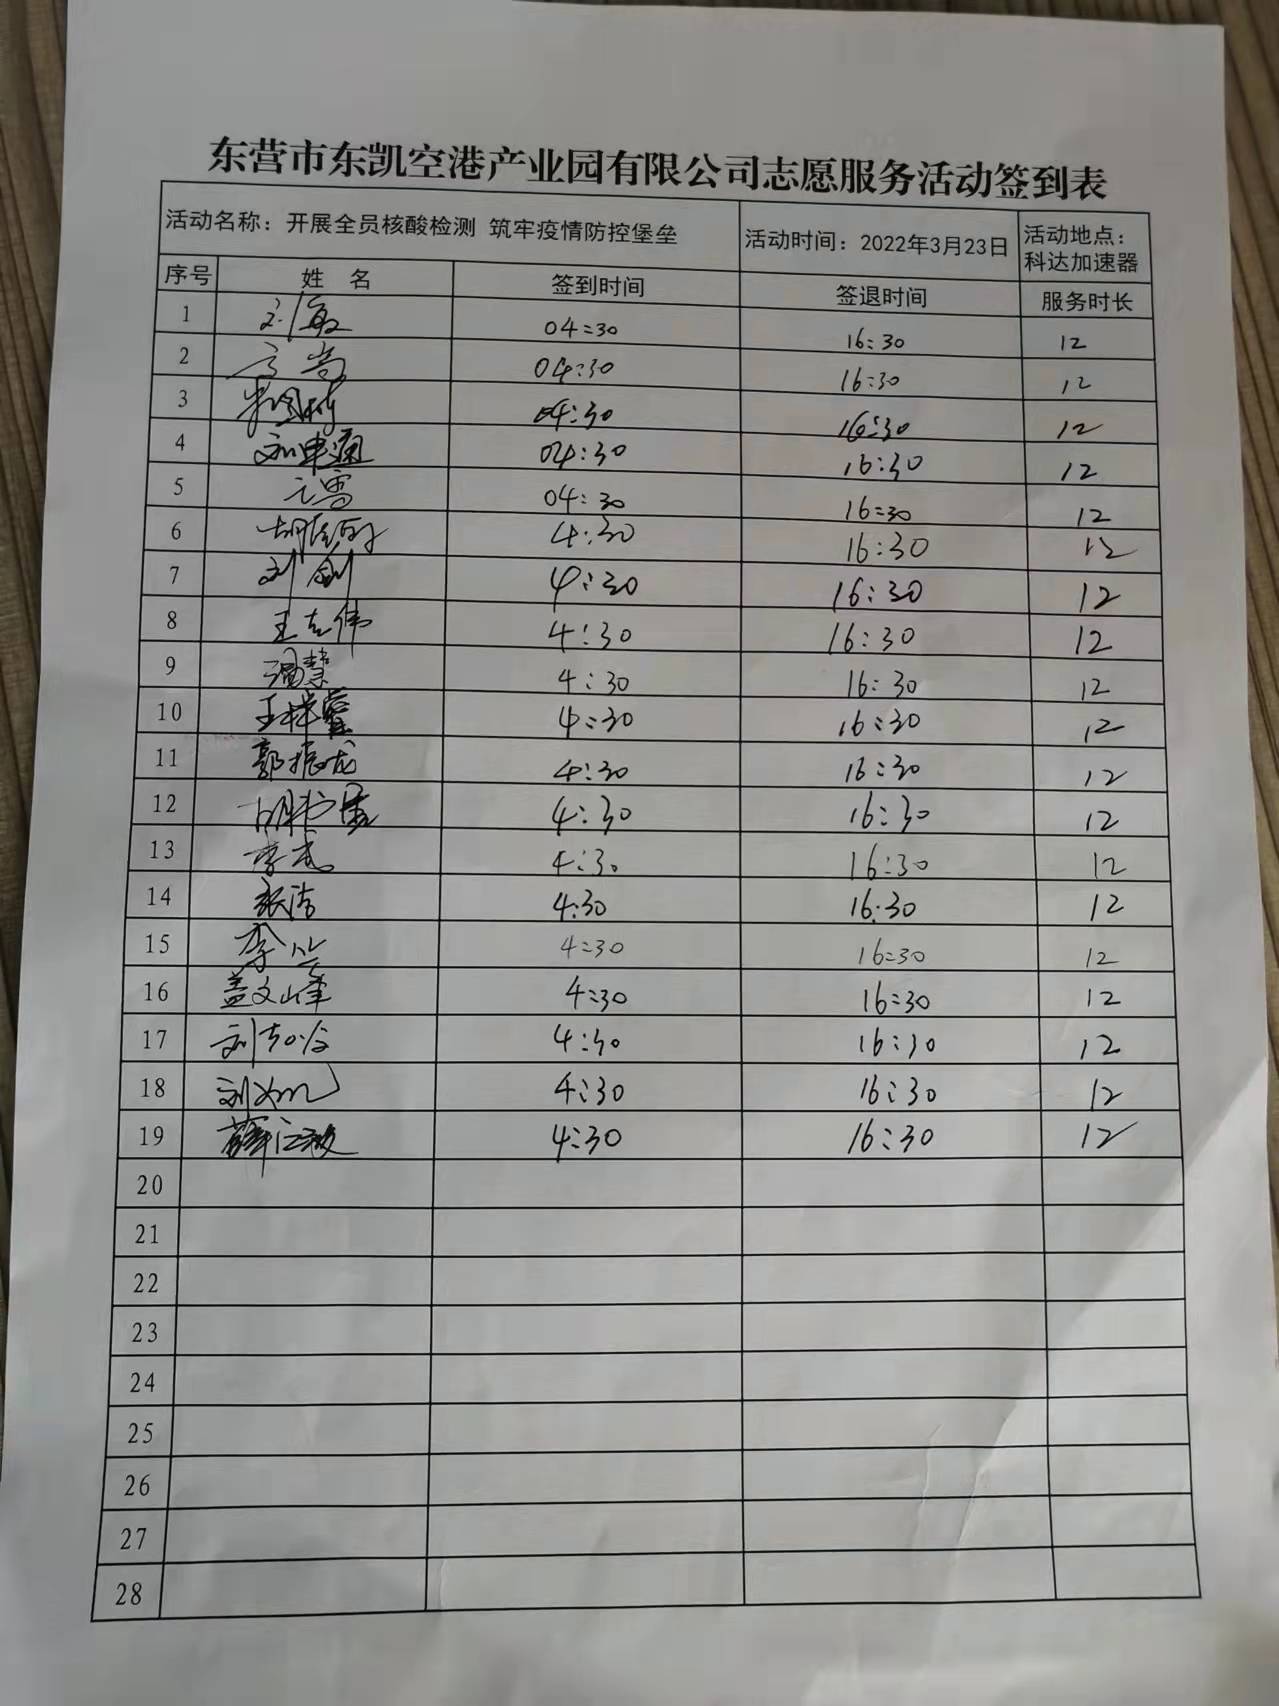 东营市东凯空港产业园有限公司志愿服务活动签到表
活动名称：开展全员核酸检测 筑牢疫情防控堡垒 活动时间：2022年3月23日 活动地点：科达加速器
序号 姓 名 签到时间 签退时间 服务时长
1 刘敏 04:30 16:30 12
2 04:30 16:30 12
3 04:30 16:30 12
4 刘申通 04:30 16:30 12
5 04:30 16:30 12
6 4:30 16:30 12
7 刘剑 4:30 16:30 12
8 王志伟 4:30 16:30 12
9 4:30 16:30 12
10 4:30 16:30 12
11 郭振龙 4:30 16:30 12
12 4:30 16:30 12
13 4:30 16:30 12
14 张洁 4:30 16:30 12
15 4:30 16:30 12
16 盖文峰 4:30 16:30 12
17 4:30 16:30 12
18 4:30 16:30 12
19 4:30 16:30 12
20
21
22
23
24
25
26
27
28